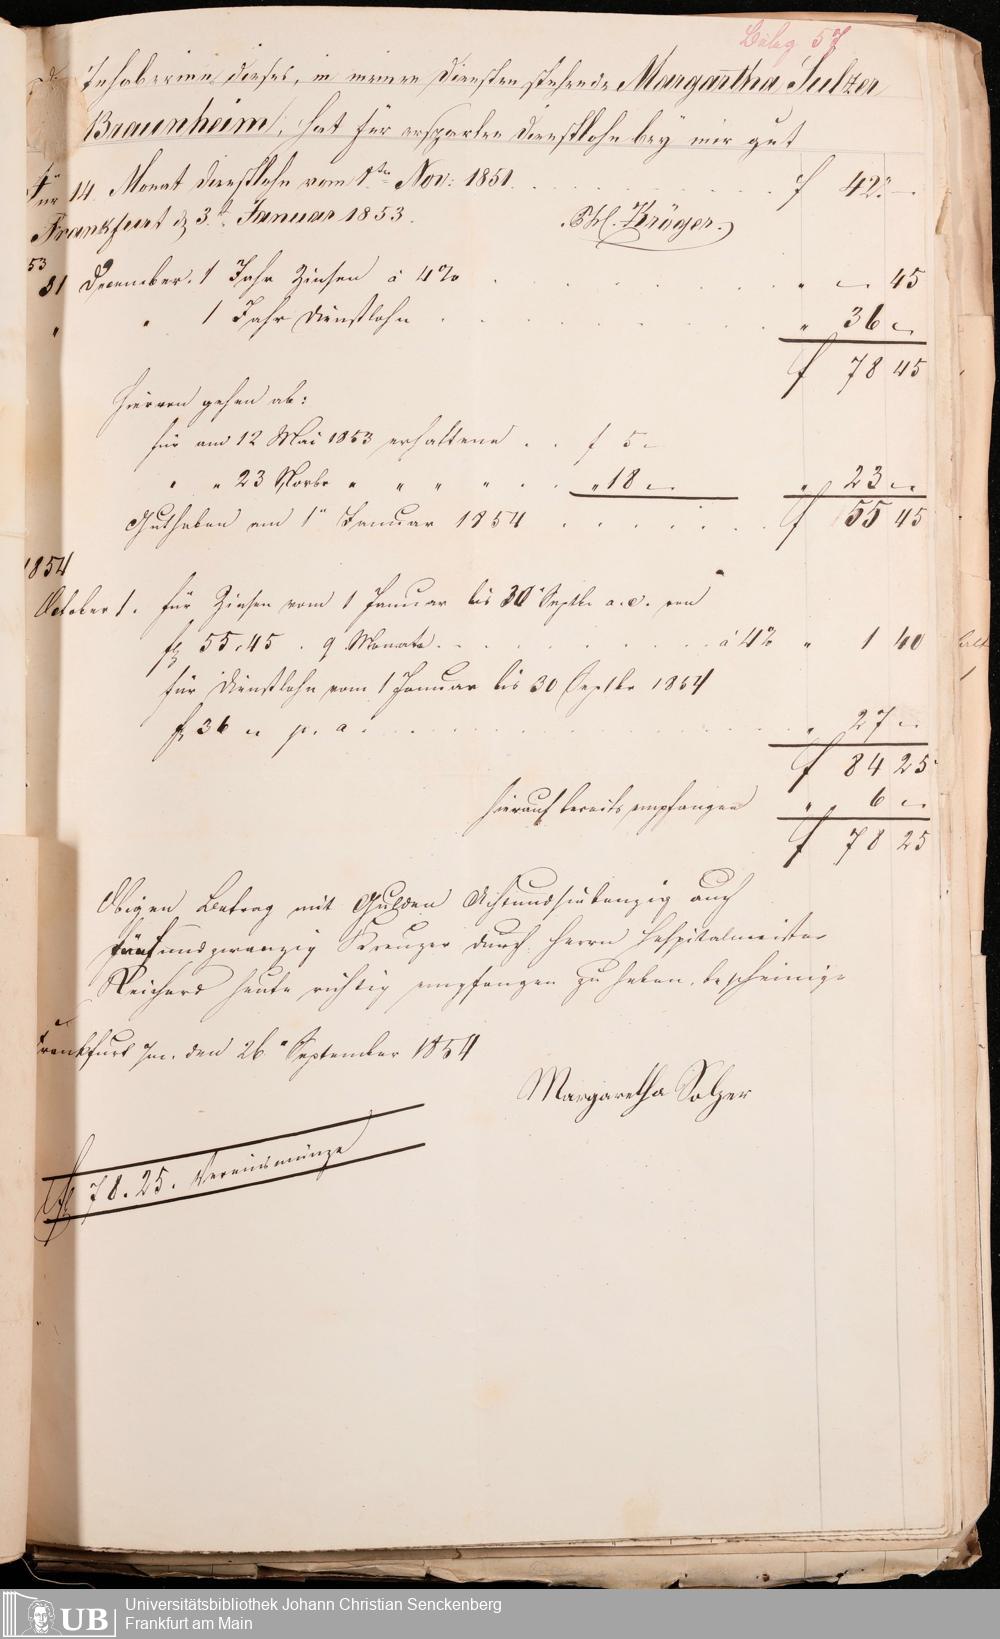 Beleg 57
Inhaberinn dieses, in meinen Diensten stehende Margaretha Sulzer
Braunheim, hat für ersparten Dienstlohn bey mir gut
für 14 Monat Dienstlohn vom 1ten Nov: 1851 . . . . . f 42.–
Frankfurt d 3t Januar 1853. Phl. Kröger.
53
31 December. 1 Jahr Zinsen á 4% . . . . . " – 45
" " 1 Jahr Dienstlohn . . . . . " 36 –
f 78 45
Hiervon gehen ab:
für am 12 Mai 1853 erhaltene . . f 5 –
" " 23 Novbr " " " " . . " 18 – " 23 –
Guthaben am 1n Januar 1854 . . . . . f 55 45
1854
October 1. für Zinsen vom 1 Januar bis 30 Septbr a. c. von
f 55.45 . 9 Monate . . . . . á 4% " 1 40
für Dienstlohn vom 1 Januar bis 30 Septbr 1854
f 36 – p. a. . . . . . " 27 –
f 84 25
hierauf bereits empfangen " 6 –
f 78 25
Obigen Betrag mit Gulden Achtundsiebenzig auch
fünfundzwanzig Kreuzer durch Herrn Hospitalmeister
Reichard heute richtig empfangen zu haben, bescheinige
Frankfurt a/m. den 26n September 1854
Margaretha Solzer
f 78.25. Vereinsmünze
UB
Universitätsbibliothek Johann Christian Senckenberg
Frankfurt am Main